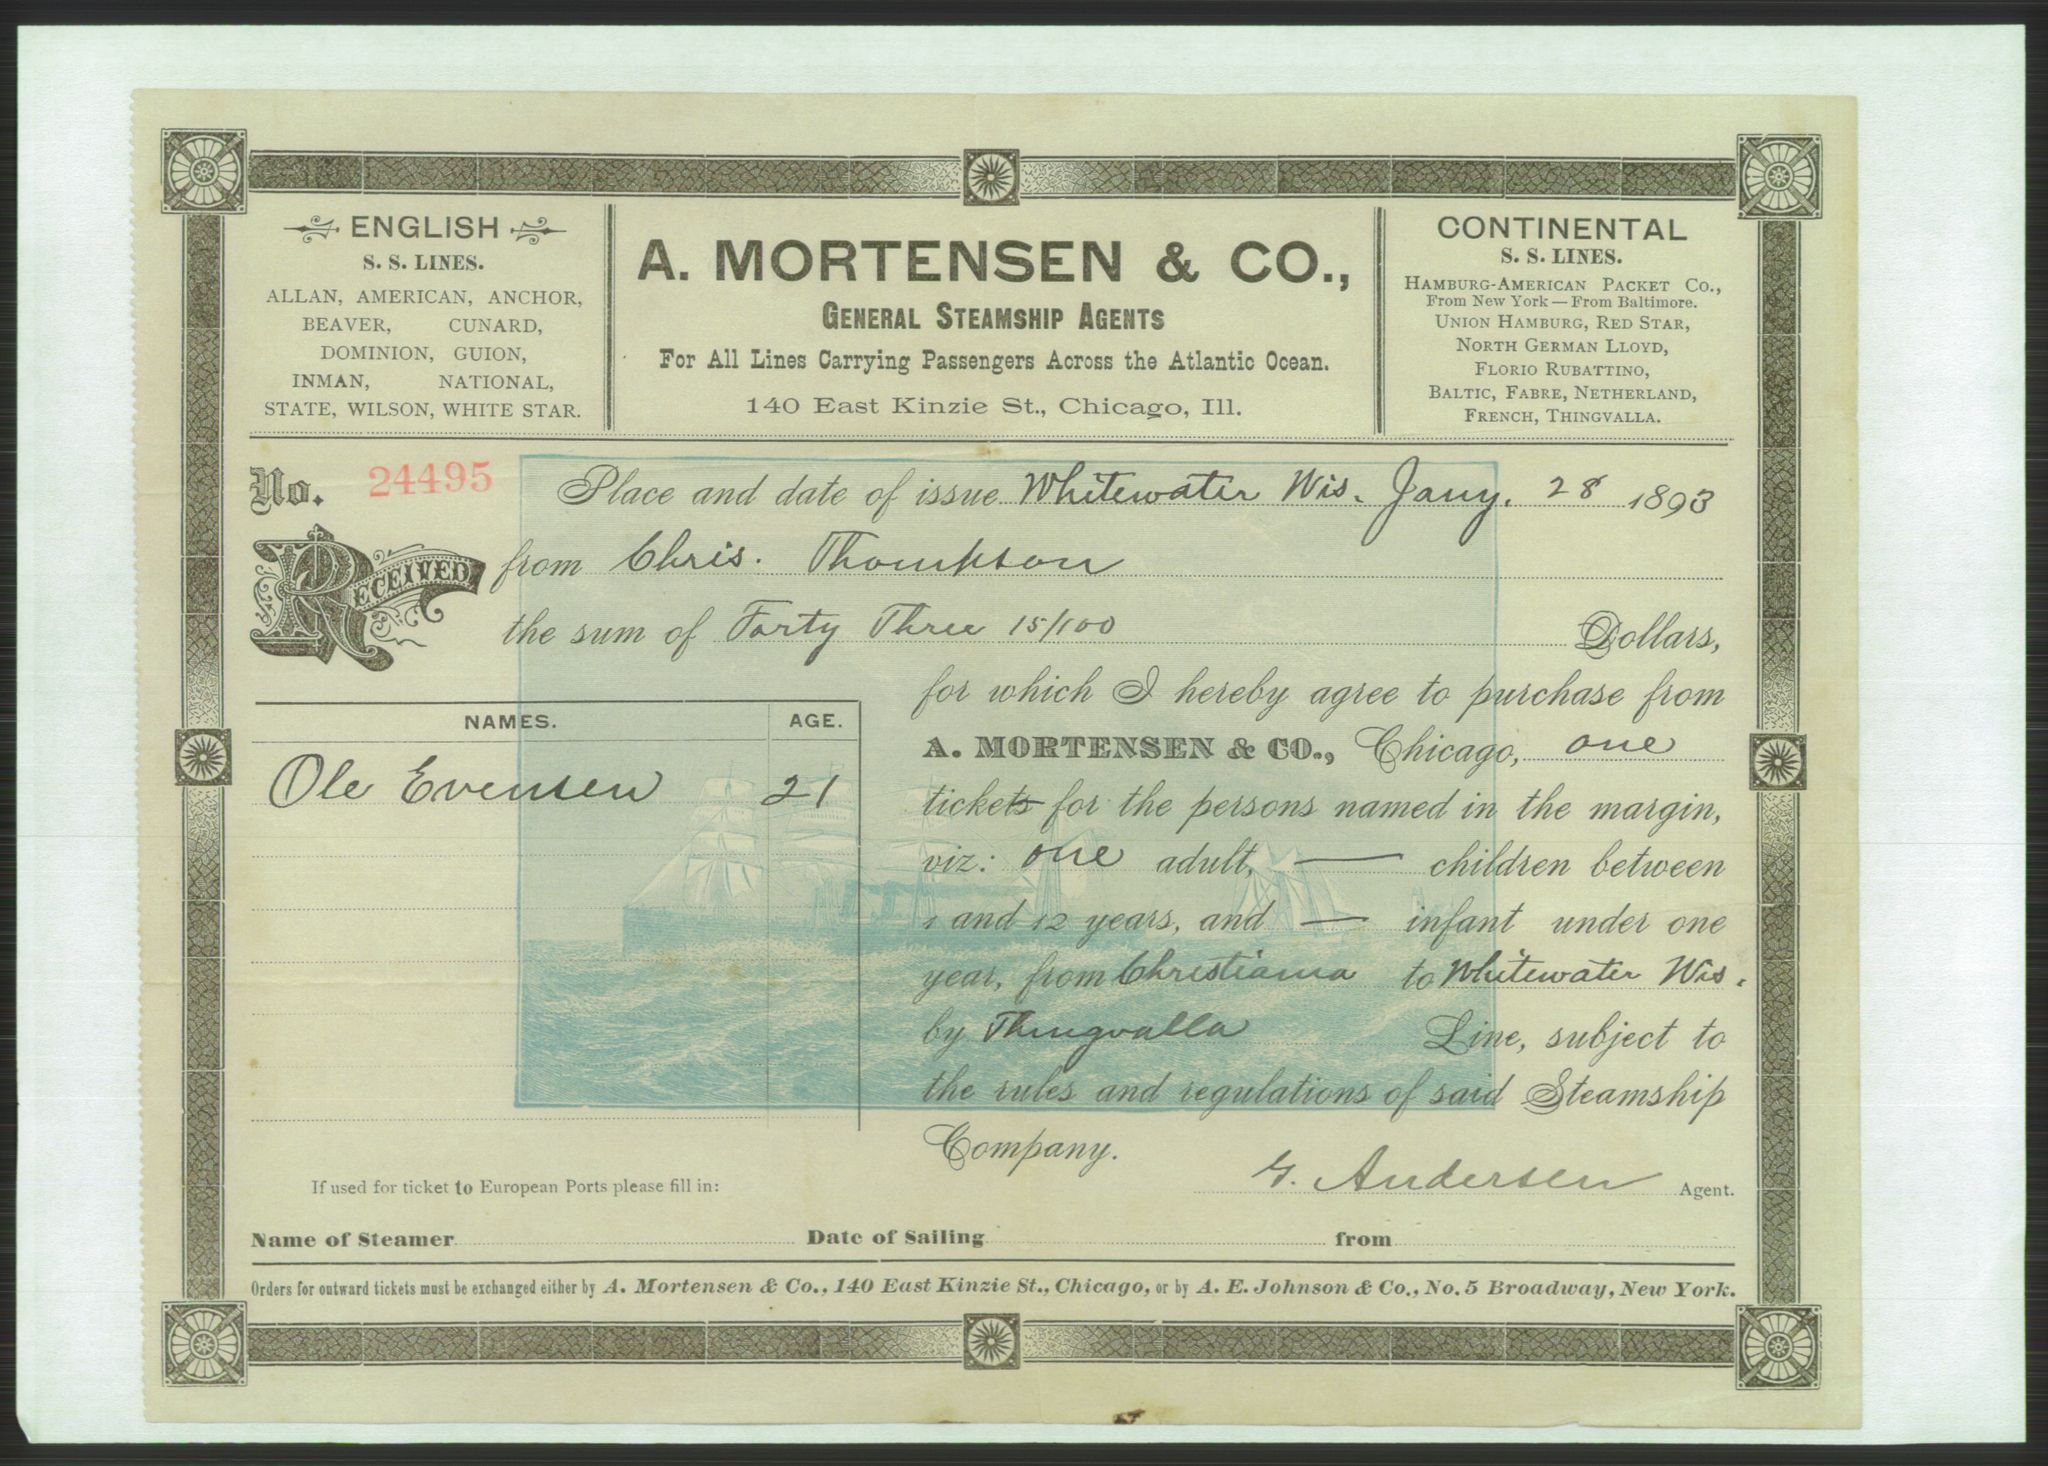 ENGLISH
S. S. LINES.
ALLAN, AMERICAN, ANCHOR,
BEAVER, CUNARD,
DOMINION, GUION,
INMAN, NATIONAL,
STATE, WILSON, WHITE STAR.
A. MORTENSEN & CO.,
GENERAL STEAMSHIP AGENTS
For All Lines Carrying Passengers Across the Atlantic Ocean.
140 East Kinzie St., Chicago, Ill.
CONTINENTAL
S. S. LINES.
HAMBURG-AMERICAN PACKET CO.,
From New York—From Baltimore.
UNION HAMBURG, RED STAR,
NORTH GERMAN LLOYD,
FLORIO RUBATTINO,
BALTIC, FABRE, NETHERLAND,
FRENCH, THINGVALLA.
No. 24495
Place and date of issue Whitewater Wis. Jany. 28 1893
RECEIVED from Chris. Thompson
the sum of Forty Three 15/100 Dollars,
for which I hereby agree to purchase from
A. MORTENSEN & CO., Chicago, one
tickets for the persons named in the margin,
viz: one adult, — children between
1 and 12 years, and — infant under one
year, from Christiania to Whitewater Wis.
by Thingvalla Line, subject to
the rules and regulations of said Steamship
Company.
NAMES. AGE.
Ole Evensen 21
G. Andersen Agent.
If used for ticket to European Ports please fill in:
Name of Steamer Date of Sailing from
Orders for outward tickets must be exchanged either by A. Mortensen & Co., 140 East Kinzie St., Chicago, or by A. E. Johnson & Co., No. 5 Broadway, New York.